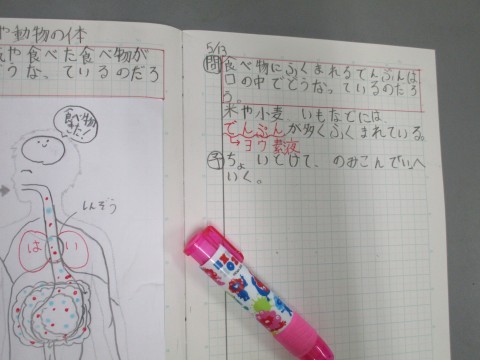 や動物の体
や食べた食べ物が
うなっているのだろ
食べ物
きた!
しんぞう
はい
5/13
問 食べ物にふくまれるでんぷんは
口の中でどうなっているのだろ
う。
米や小麦、いもなどには、
でんぷんが多くふくまれている。
↳ヨウ素液
予 ちょっといてけて、のみこんでいへ
いく。